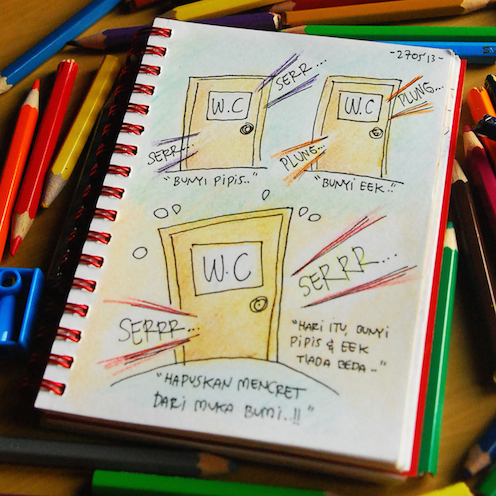 -270513-
SERR...
W.C
SERR...
"BUNYI PIPIS.."
W.C
PLUNG...
PLUNG...
"BUNYI EEK.."
W.C
SERRR...
SERRR...
"HARI ITU, BUNYI
PIPIS & EEK
TIADA BEDA.."
"HAPUSKAN MENCRET
DARI MUKA BUMI..!!"